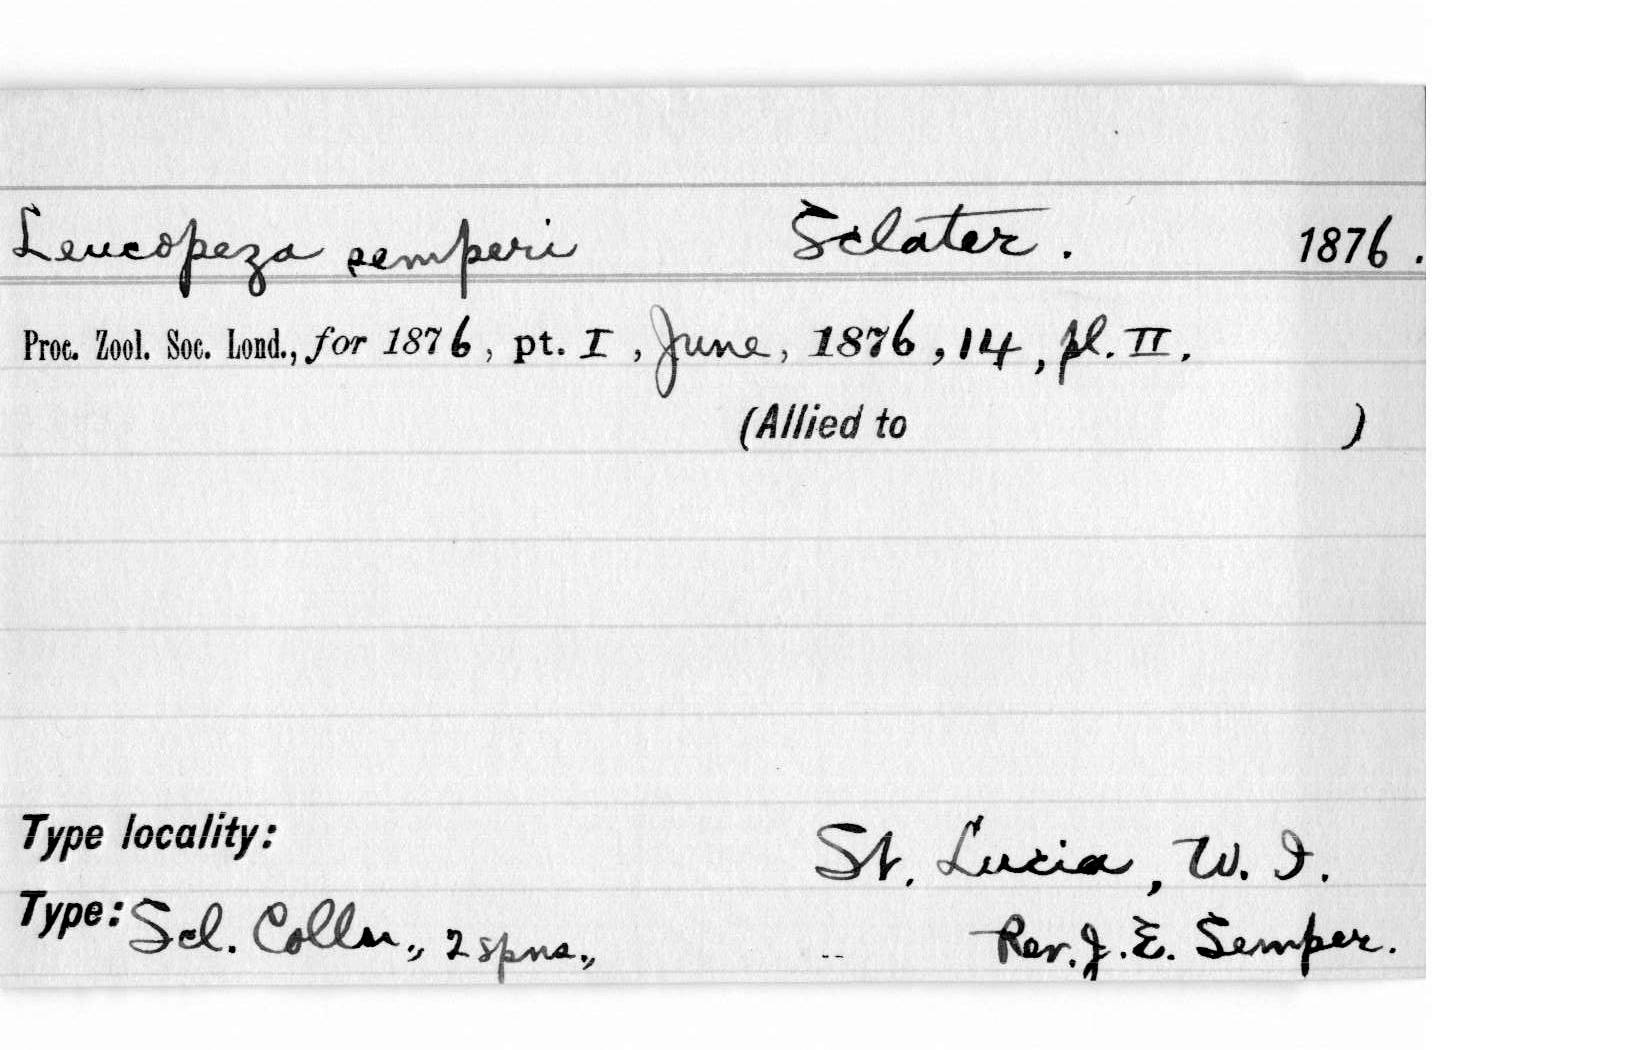 Leucopeza semperi Sclater. 1876.
Proc. Zool. Soc. Lond., for 1876, pt. I, June, 1876, 14, pl. II.
(Allied to )
Type locality: St. Lucia, W. I.
Type: Scl. Colln., 2 spns., -- Rev. J. E. Semper.